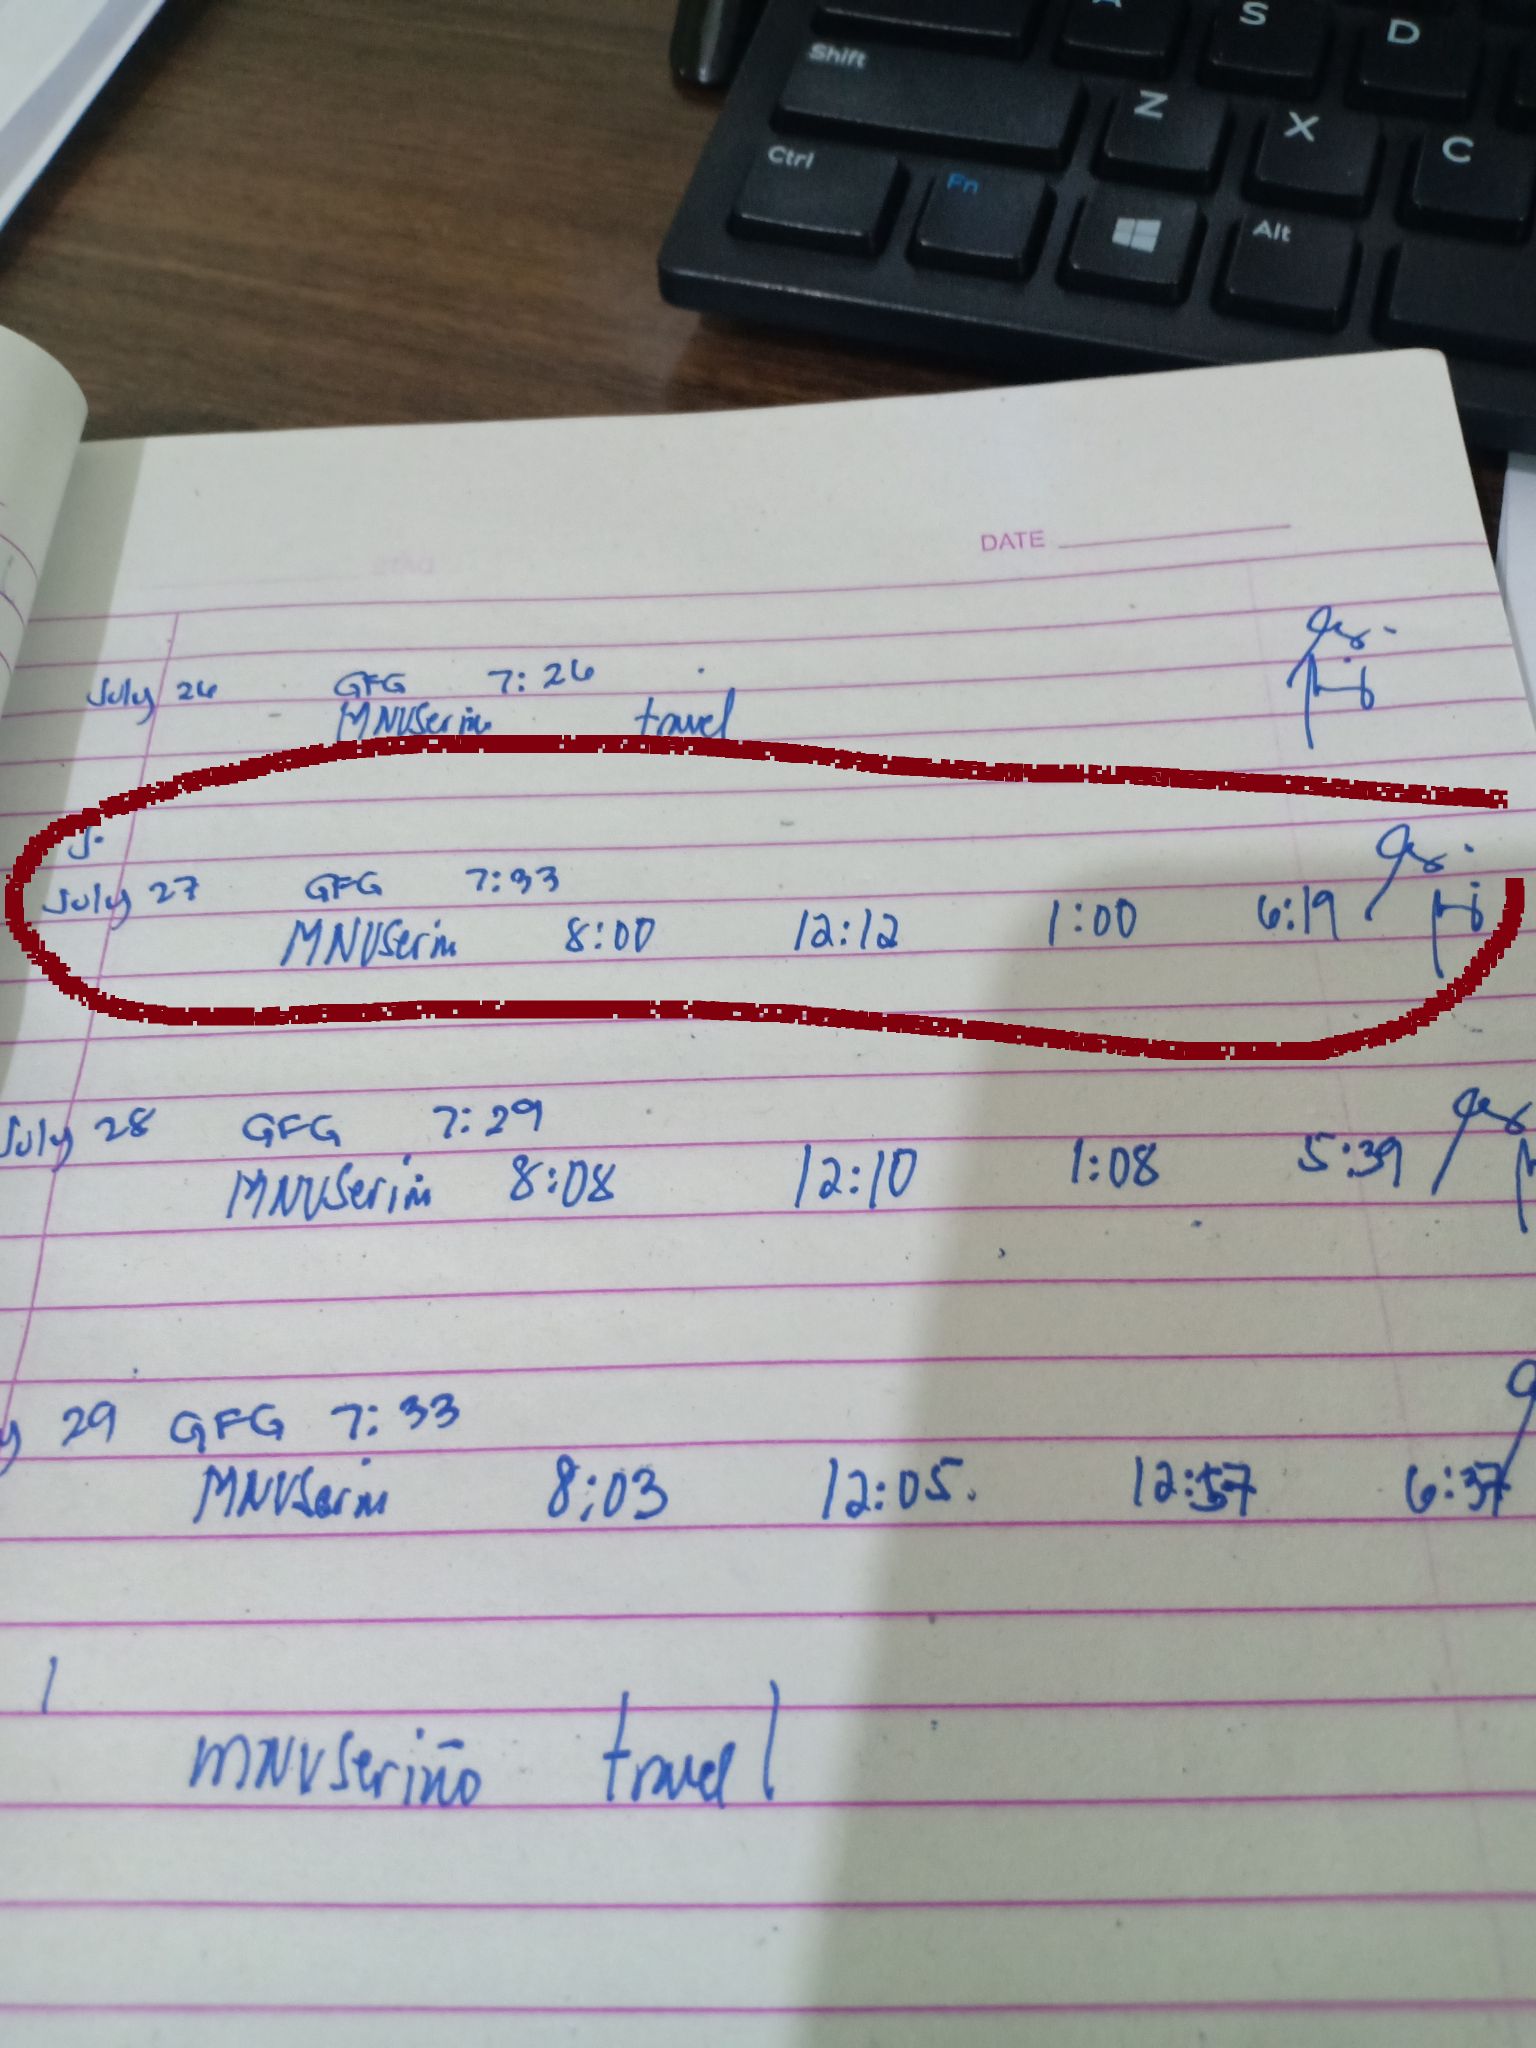 A S D
Shift Z X C
Ctrl Fn Alt
DATE
July 26 GFG 7:26
MNVSerin travel
J.
July 27 GFG 7:33
MNVSerin 8:00 12:12 1:00 6:19
July 28 GFG 7:29
MNVSerin 8:08 12:10 1:08 5:39
y 29 GFG 7:33
MNVSerin 8:03 12:05. 12:57 6:37
MNVSeriño travel